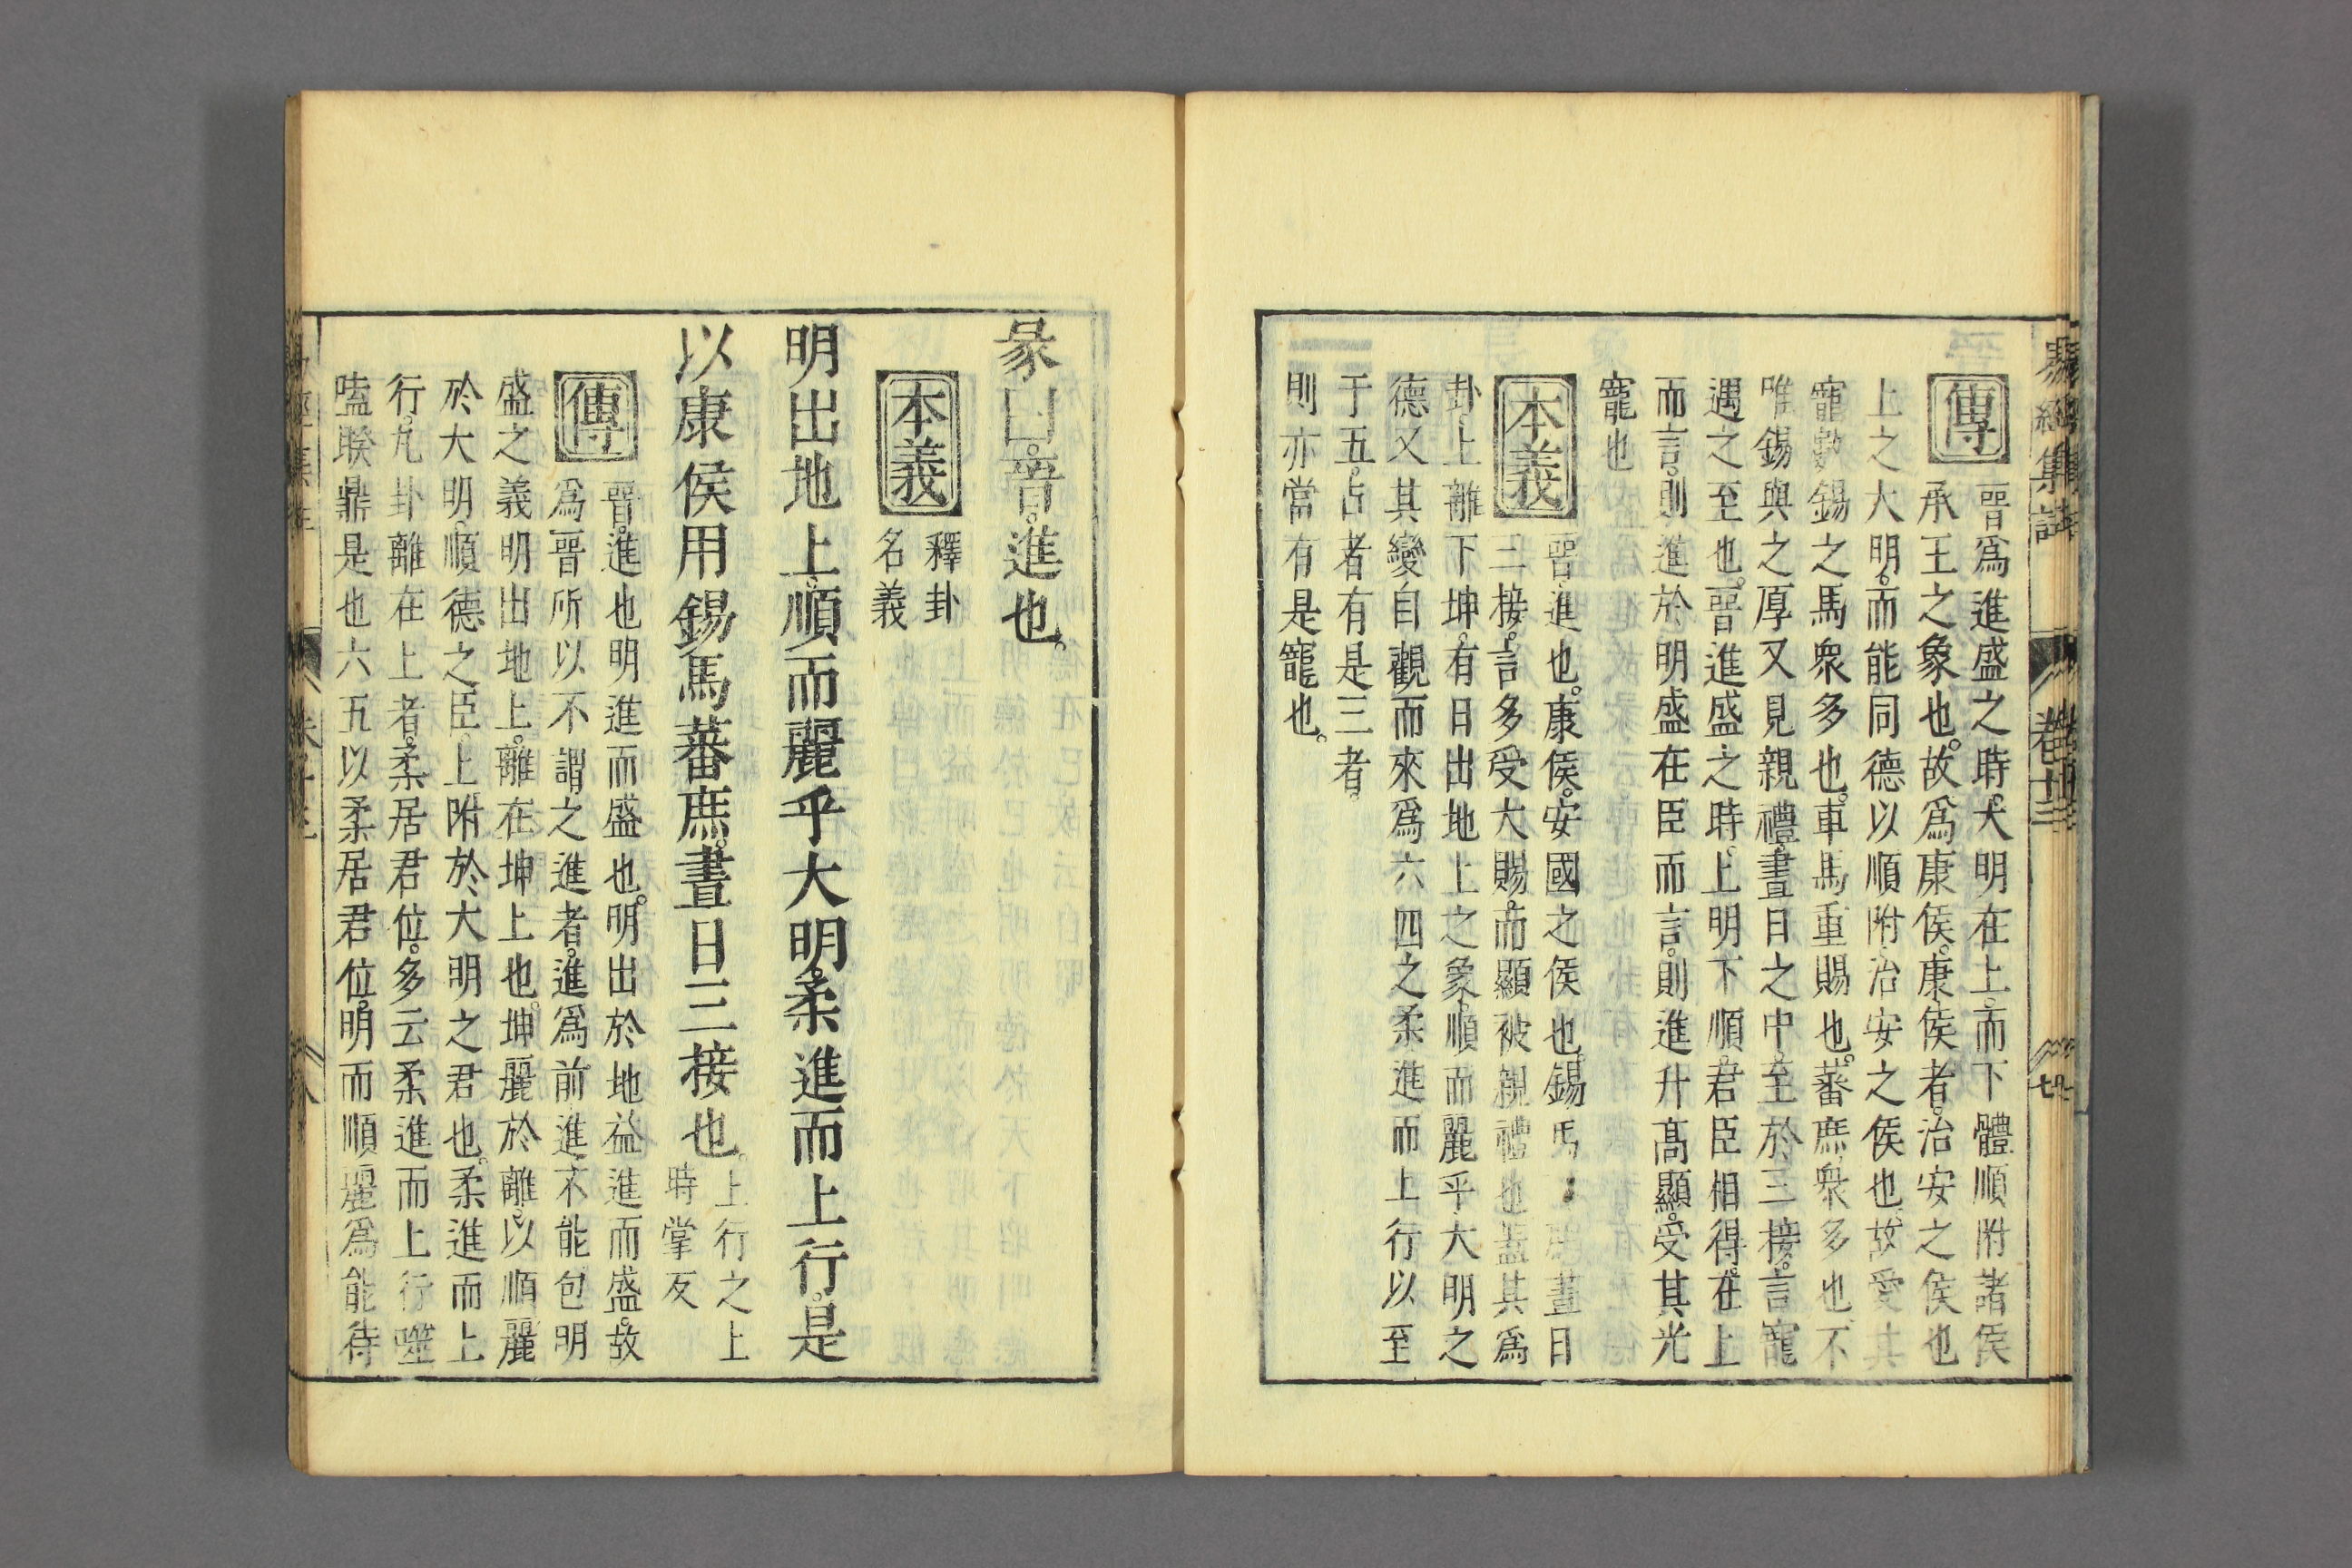 傳
晉爲進盛之時。大明在上。而下體順附諸侯
承王之象也。故爲康侯。康侯者。治安之侯也
上之大明。而能同德以順附治安之侯也。故受其
寵數錫之馬衆多也。車馬重賜也。蕃庶衆多也不
唯錫與之厚又見親禮。晝日之中。至於三接。言寵
遇之至也。晉進盛之時。上明下順。君臣相得。在上
而言。則進於明盛在臣而言。則進升髙顯。受其光
寵也
本義
晉進也。康侯。安國之侯也。錫馬 晝日
三接。言多受大賜。而顯被親禮也蓋其爲
卦上離下坤。有日出地上之象。順而麗乎大明之
德又其變自觀而來爲六四之柔進而上行以至
于五。占者有是三者。
則亦當有是寵也。
彖曰。晉。進也。
本義
釋卦
名義
明出地上。順而麗乎大明。柔進而上行。是
以康侯用錫馬蕃庶。晝日三接也。
上行之上
時掌反
傳
晉。進也明進而盛也。明出於地益進而盛。故
爲晉所以不謂之進者。進爲前進不能包明
盛之義明出地上。離在坤上也。坤麗於離。以順麗
於大明。順德之臣。上附於大明之君也。柔進而上
行。凢卦離在上者。柔居君位。多云柔進而上行噬
嗑睽鼎是也六五以柔居君位。明而順麗爲能待